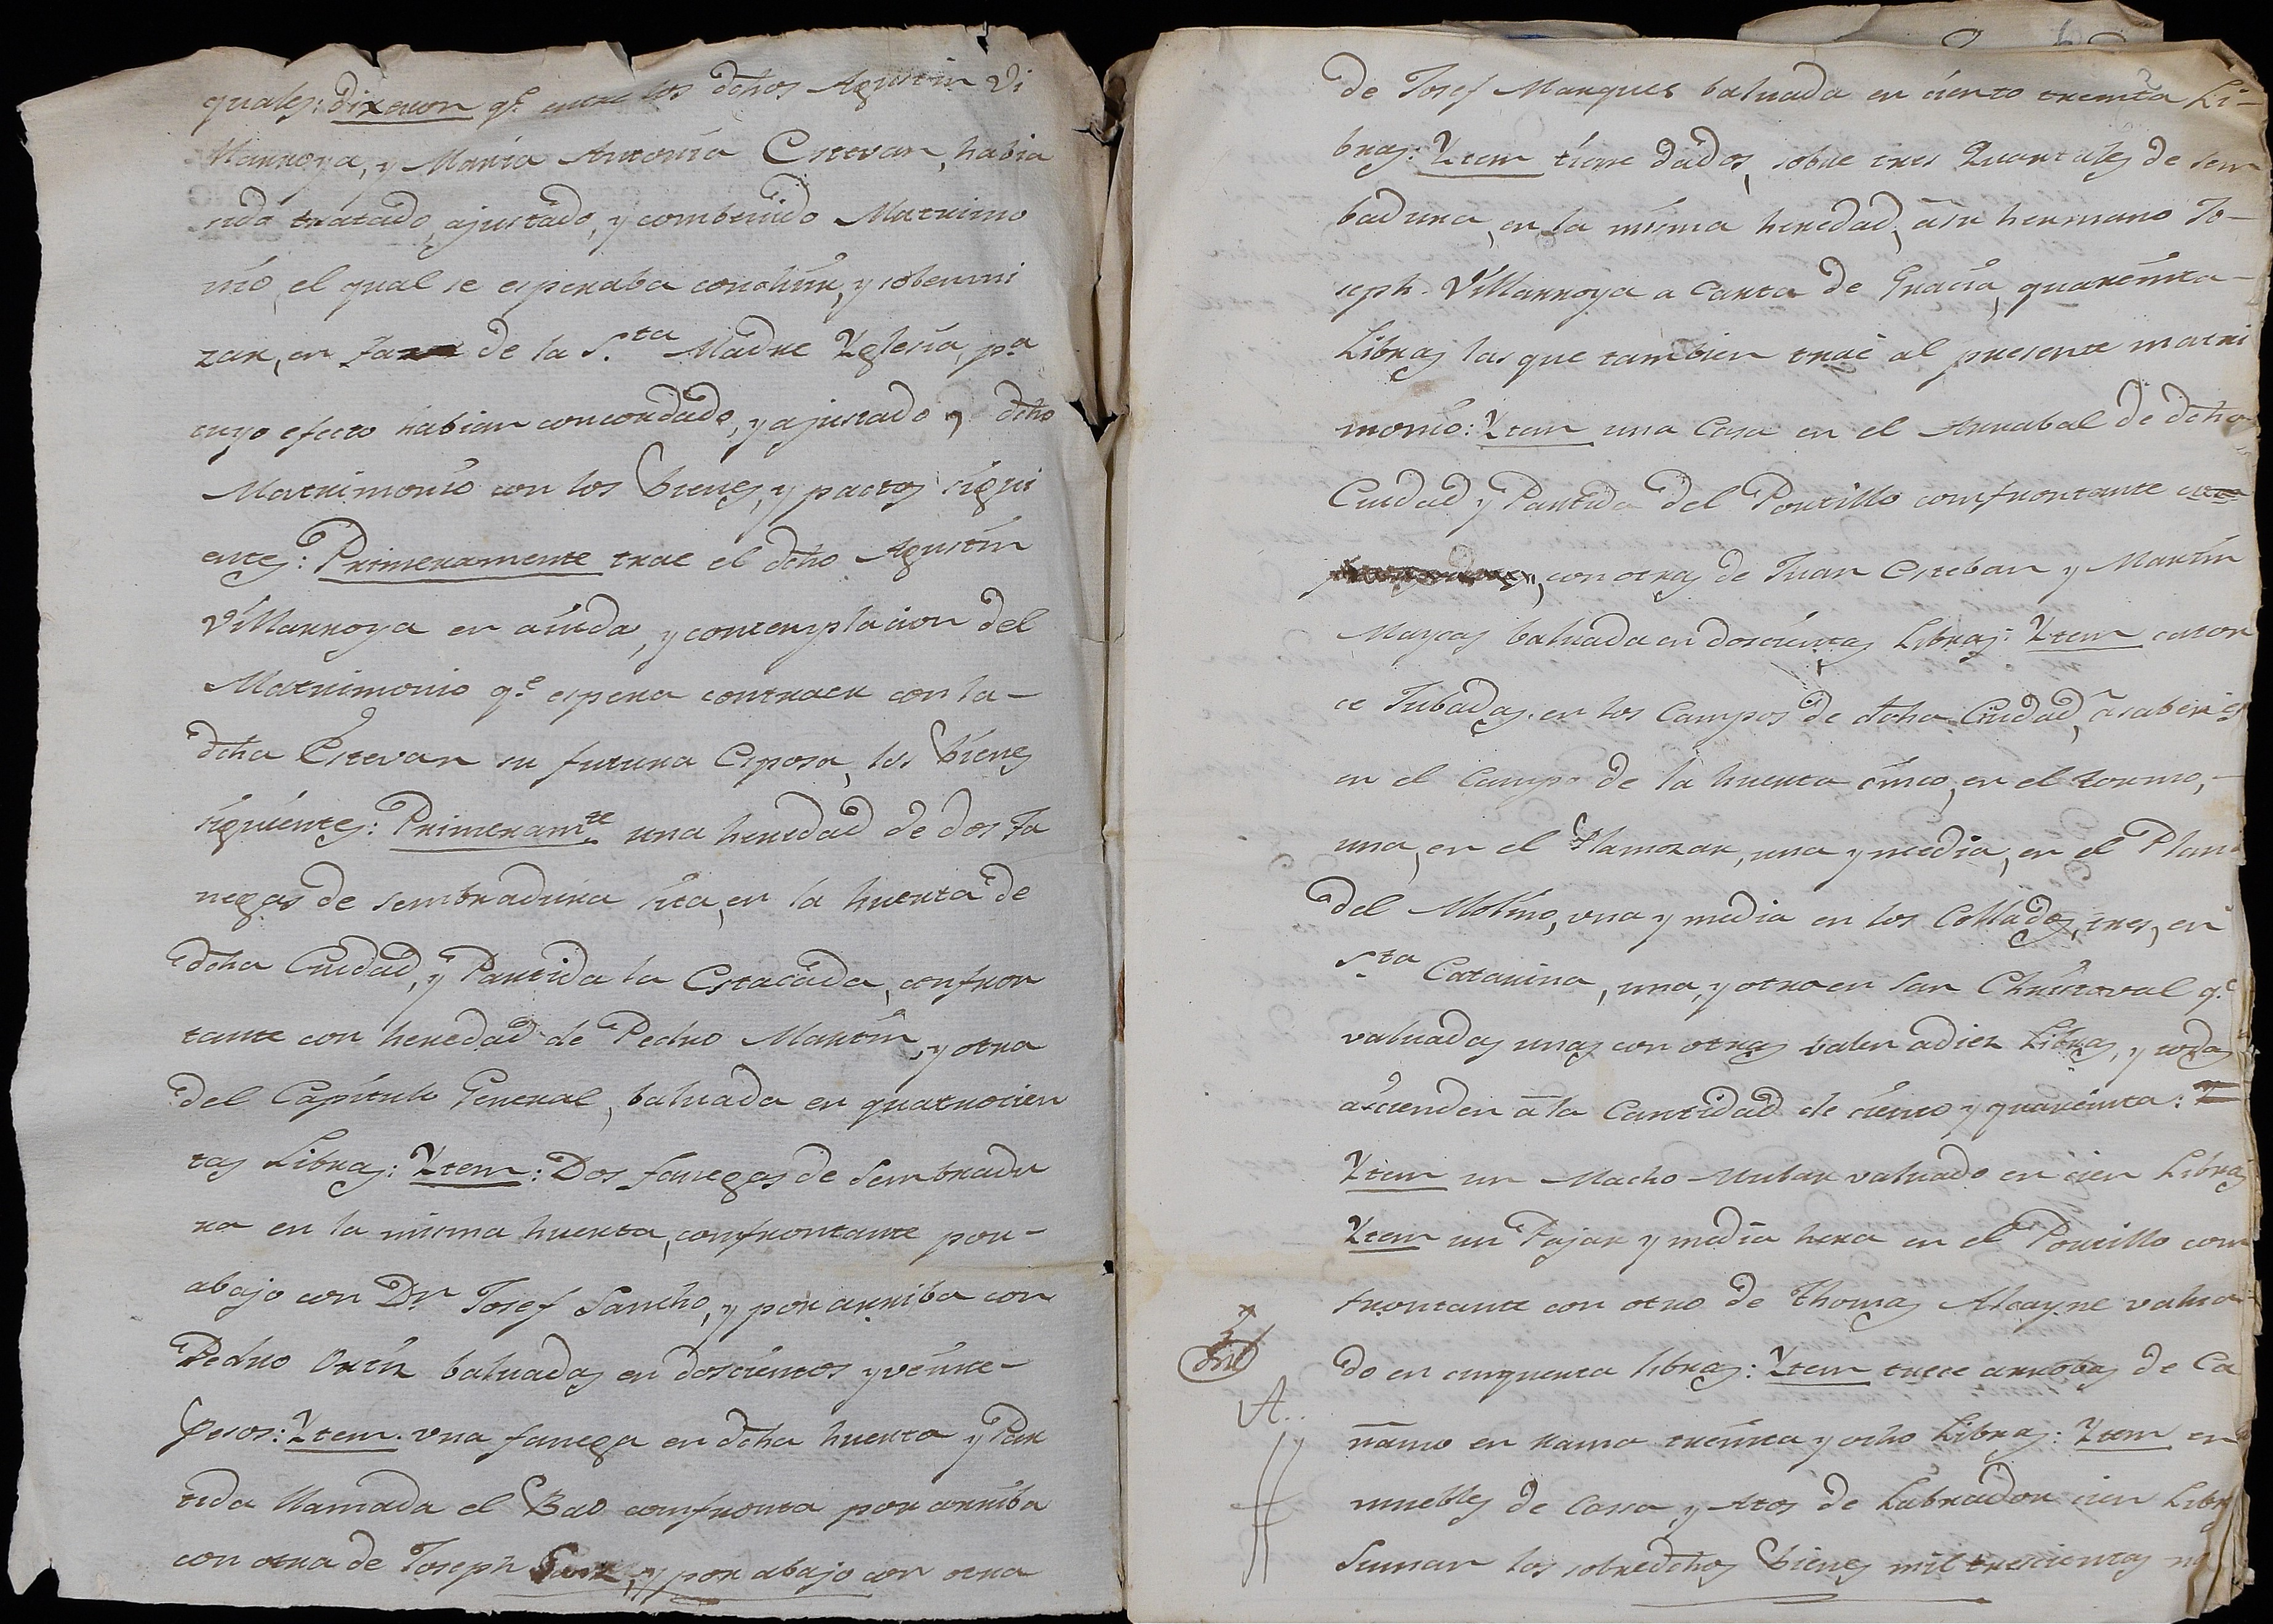 quales: dixeron q.e entre los dchos Agustin Vi
llarroya, y Maria Antonia Estevan, habia
sido tratado, ajustado, y combenido Matrimo
nio, el qual se esperaba concluir, y solemni
zar, en Faz de la S.ta Madre Yglesia, p.a
cuyo efecto habian concordado, y ajustado dcho
Matrimonio con los bienes, y pactos sigui
entes: Primeramente trae el dcho Agustin
Villarroya en aiuda, y contemplacion del
Matrimonio q.e espera contraer con la-
dcha Estevan su futura Esposa, los bienes
siguientes: Primeram.te una heredad de dos fa
negas de sembradura sita, en la huerta de
dcha Ciudad, y Partida la Estacada, confron
tante con heredad de Pedro Martin, y otra
del Capitulo General, baluada en quatrocien
tas Libras: Ytem: Dos fanegas de Sembradu
ra en la misma huerta, confrontante por-
abajo con Dn Josef Sancho, y por arriba con
Pedro Ortiz baluadas en doscientos y veinte-
pesos: Ytem. una fanega en dcha huerta y Par
tida llamada el Bao confronta por arriba
con otra de Joseph Sanz, y por abajo con otra
de Josef Marques baluada en ciento treinta Li-
bras: Ytem tiene dados, sobre tres Quartales de sem
badura, en la misma heredad, à su hermano Jo-
seph Villarroya a Carta de Gracia, quarenta-
Libras las que tambien trae al presente matri
monio: Ytem una Casa en el Arrabal de dcha
Ciudad y Partida del Portillo confrontante
con otras de Juan Esteban y Martin
Maycas baluada en doscientas Libras: Ytem cator
ce Jubadas en los Campos de dcha Ciudad, à saber es
en el Campo de la huerta cinco, en el tormo,-
una, en el Plamozar, una y media, en el Plan
del Molino, una y media en los Collados, tres, en
S.ta Catarina, una, y otra en San Christoval q.e
valuadas unas con otras valen a diez Libras, y todas
ascienden à la Cantidad de ciento y quarenta:
Ytem un Macho Mular valuado en cien Libras
Ytem un Pajar y media hera en el Portillo con
frontante con otro de Thomas Alcayne valua-
do en cinquenta libras: Ytem trece arrobas de Ca
ñamo en rama treinta y ocho Libras: Ytem en
muebles de Cassa, y Atos de Labrador cien Libr
Suman los sobredchos bienes mil trescientas